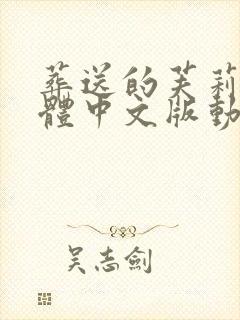 葬送的芙莉
體中文版動
吳志劍